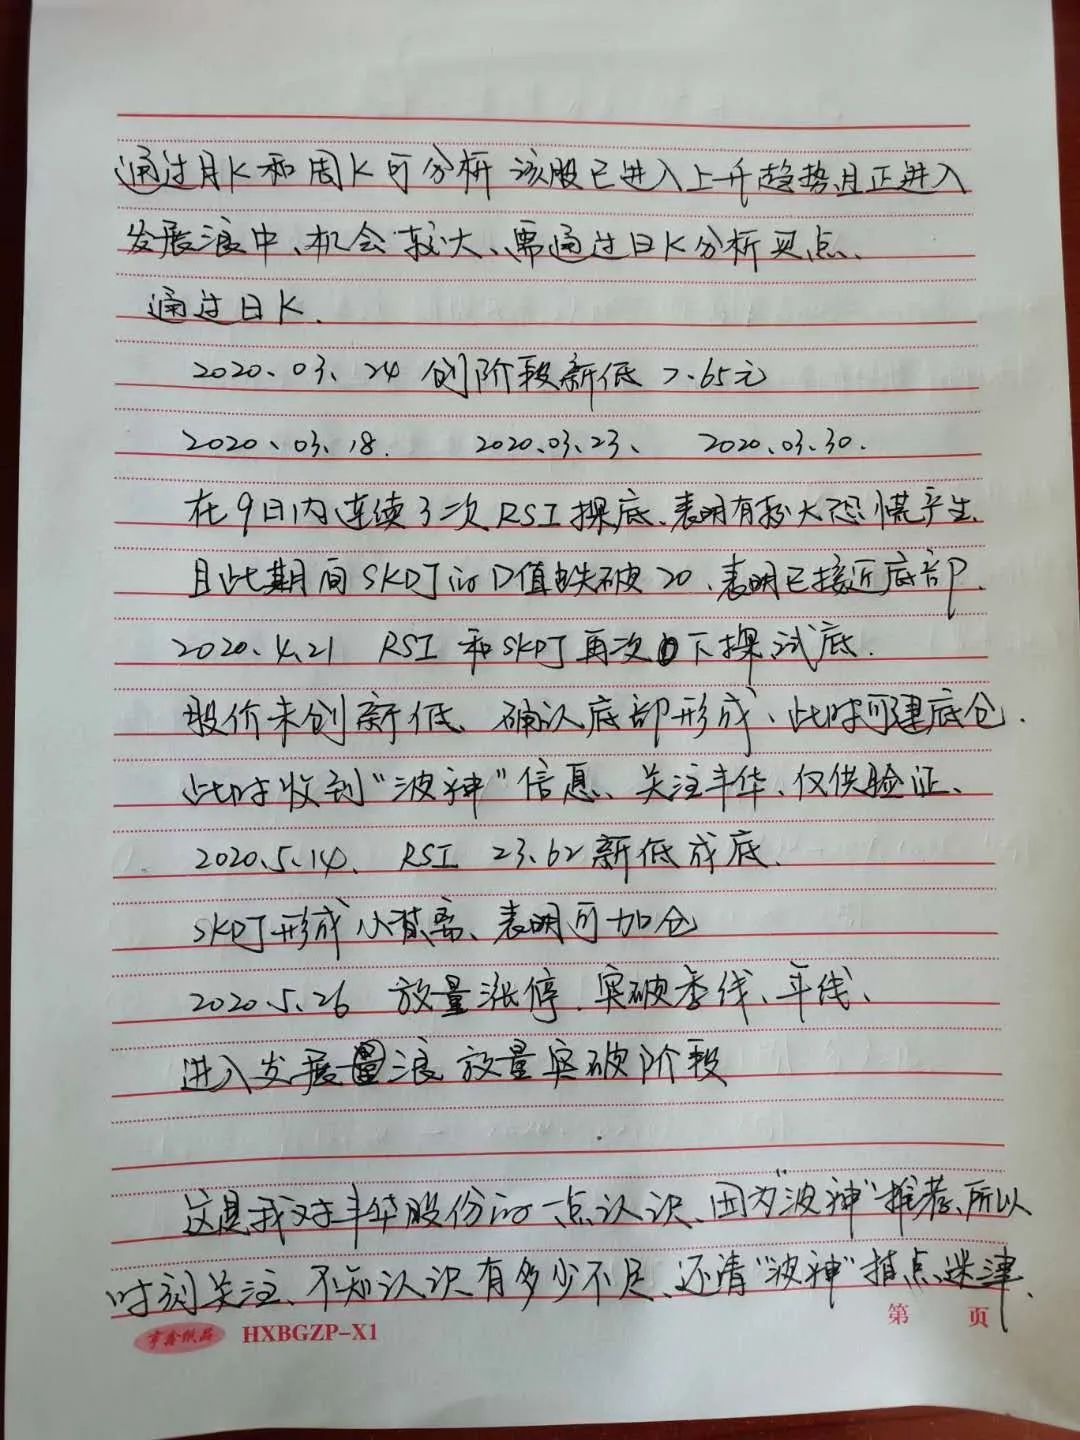 通过月K和周K可分析该股已进入上升趋势,且正进入
发展浪中、机会较大、需通过日K分析买点、
通过日K.
2020、03、24 创阶段新低 7.65元
2020、03、18. 2020.03.23、 2020.03.30.
在9日内连续3次RSI探底、表明有较大恐慌产生、
且此期间SKDJ的D值跌破20、表明已接近底部.
2020.4.21 RSI和SKDJ再次下探试底.
股价未创新低、确认底部形成、此时可建底仓.
此时收到“波神”信息、关注丰华、仅供验证、
2020.5.14、 RSI 23.62新低成底.
SKDJ形成背离、表明可加仓
2020.5.26 放量涨停.突破季线、年线、
进入发展浪 放量突破阶段
这是我对丰华股份的一点认识、因为“波神”推荐、所以
时刻关注、不知认识有多少不足、还请“波神”指点迷津.
亨鑫纸品 HXBGZP-X1 第 页